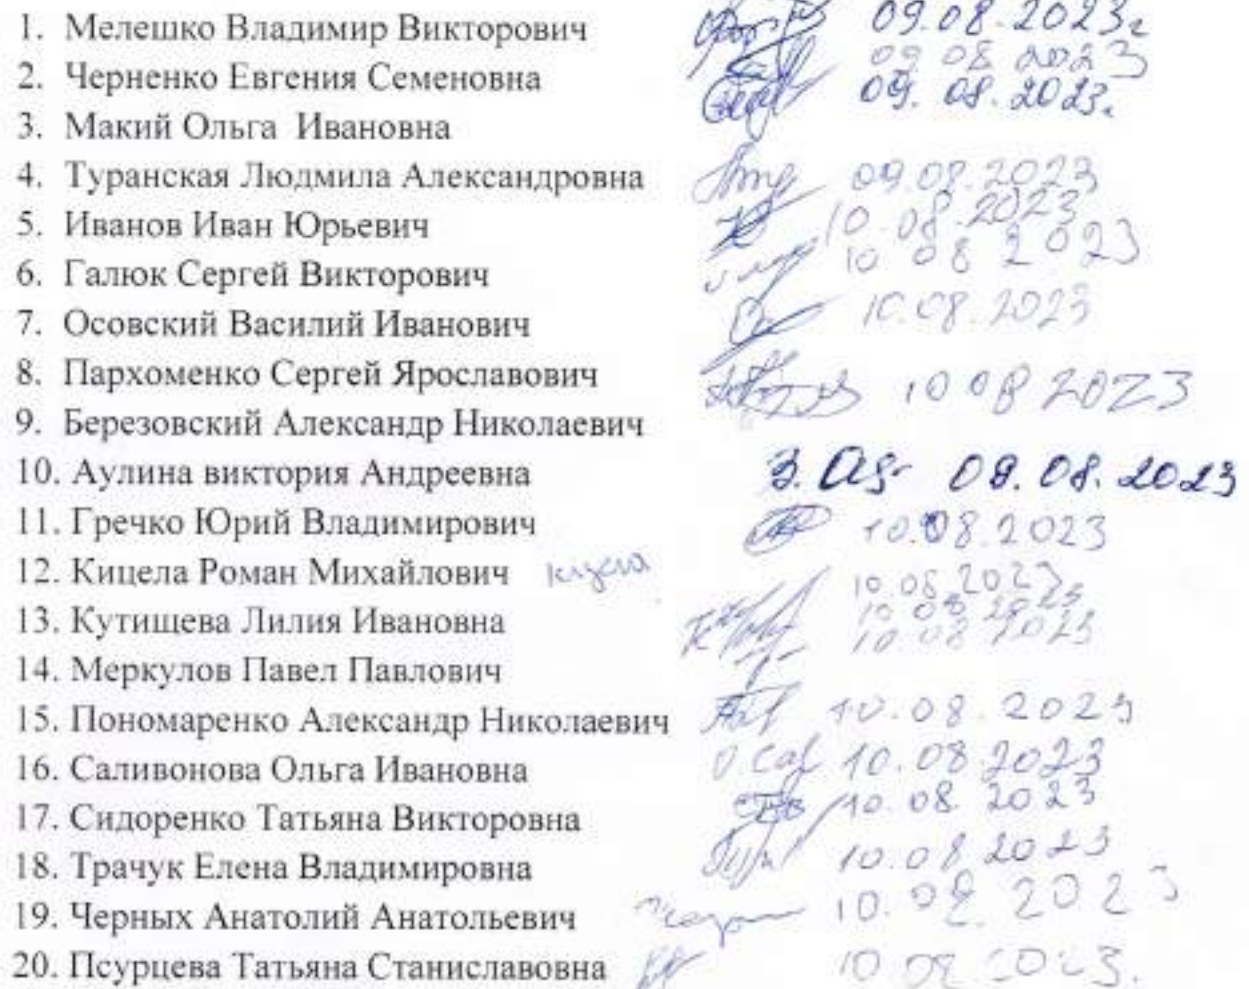 1. Мелешко Владимир Викторович 09.08.2023г
2. Черненко Евгения Семеновна 09 08 2023
3. Макий Ольга Ивановна 09. 08. 2023г.
4. Туранская Людмила Александровна 09.08.2023
5. Иванов Иван Юрьевич 10.08.2023
6. Галюк Сергей Викторович 10 08 2023
7. Осовский Василий Иванович 10.08.2023
8. Пархоменко Сергей Ярославович 10 08 2023
9. Березовский Александр Николаевич
10. Аулина виктория Андреевна 09.08.2023
11. Гречко Юрий Владимирович 10.08.2023
12. Кицела Роман Михайлович 10.08.2023
13. Кутищева Лилия Ивановна 10 08 2023
14. Меркулов Павел Павлович 10.08 2023
15. Пономаренко Александр Николаевич 10.08.2023
16. Саливонова Ольга Ивановна 10.08 2023
17. Сидоренко Татьяна Викторовна 10.08 2023
18. Трачук Елена Владимировна 10.08 2023
19. Черных Анатолий Анатольевич 10.08. 2023
20. Псурцева Татьяна Станиславовна 10 08 2023.